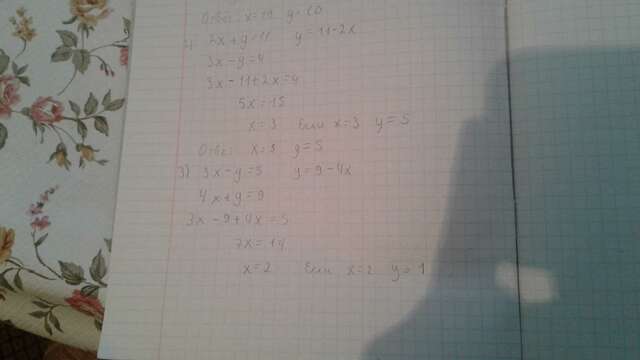 Ответ: x=19 y=10
2x+y=11 y=11-2x
3x-y=4
3x-11+2x=4
5x=15
x=3 Если x=3 y=5
Ответ: x=3 y=5
3) 3x-y=5 y=9-4x
4x+y=9
3x-9+4x=5
7x=14
x=2 Если x=2 y=1